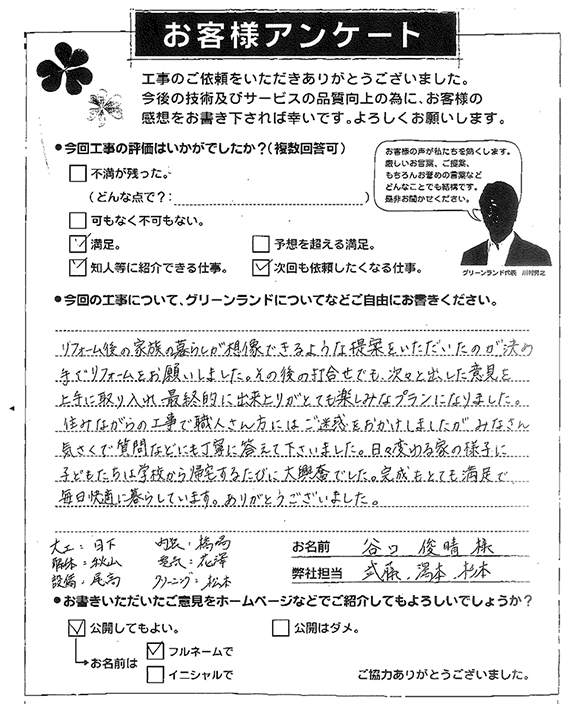 お客様アンケート
工事のご依頼をいただきありがとうございました。
今後の技術及びサービスの品質向上の為に、お客様の
感想をお書き下されば幸いです。よろしくお願いします。
●今回工事の評価はいかがでしたか?(複数回答可)
不満が残った。
(どんな点で?: )
可もなく不可もない。
満足。
予想を超える満足。
知人等に紹介できる仕事。
次回も依頼したくなる仕事。
お客様の声が私たちを熱くします。
厳しいお言葉、ご提案、
もちろんお誉めの言葉など
どんなことでも結構です。
是非お聞かせください。
グリーンランド代表
●今回の工事について、グリーンランドについてなどご自由にお書きください。
リフォーム後の家族の暮らしが想像できるような提案をいただいたのが決め
手でリフォームをお願いしました。その後の打合せでも、次々と出した意見を
上手に取り入れ、最終的に出来上りがとても楽しみなプランになりました。
住みながらの工事で職人さん方にはご迷惑をおかけしましたが、みなさん
気さくで質問などにも丁寧に答えて下さいました。日々変わる家の様子に
子どもたちは学校から帰宅するたびに大興奮でした。完成もとても満足で、
毎日快適に暮らしています。ありがとうございました。
大工:日下
内装:
解体:秋山
電気:花澤
設備:尾高
クリーニング:松本
お名前 谷口 俊晴 様
弊社担当 武藤、湯本、杉本
●お書きいただいたご意見をホームページなどでご紹介してもよろしいでしょうか?
公開してもよい。
公開はダメ。
お名前は
フルネームで
イニシャルで
ご協力ありがとうございました。